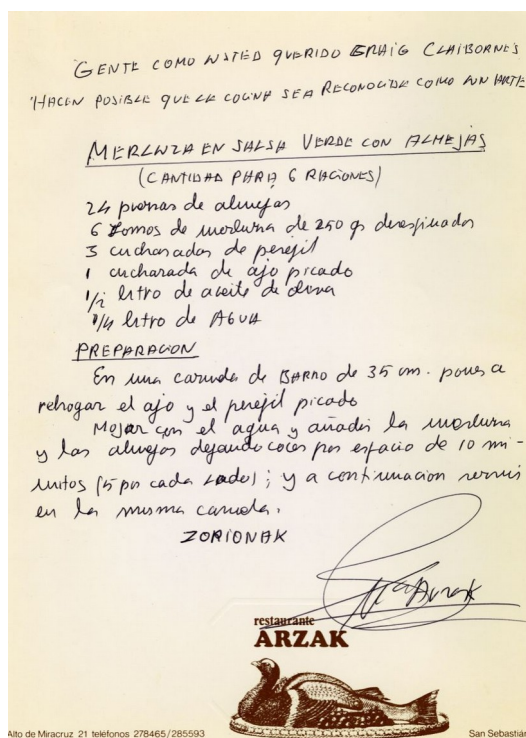 GENTE COMO USTED QUERIDO GRAIG CLAIBORNE'S
HACEN POSIBLE QUE LA COCINA SEA RECONOCIDA COMO UN ARTE
MERLUZA EN SALSA VERDE CON ALMEJAS
(CANTIDAD PARA 6 RACIONES)
24 piezas de almejas
6 lomos de merluza de 250 gs desespinados
3 cucharadas de perejil
1 cucharada de ajo picado
1/2 litro de aceite de oliva
1/4 litro de AGUA
PREPARACION
En una cazuela de BARRO de 35 cm. pones a
rehogar el ajo y el perejil picado
Mojar con el agua y añadir la merluza
y las almejas dejando cocer por espacio de 10 mi-
nutos (5 por cada lado); y a continuacion servir
en la misma cazuela.
ZORIONAK
Arzak
restaurante
ARZAK
Alto de Miracruz 21 teléfonos 278465/285593 San Sebastián